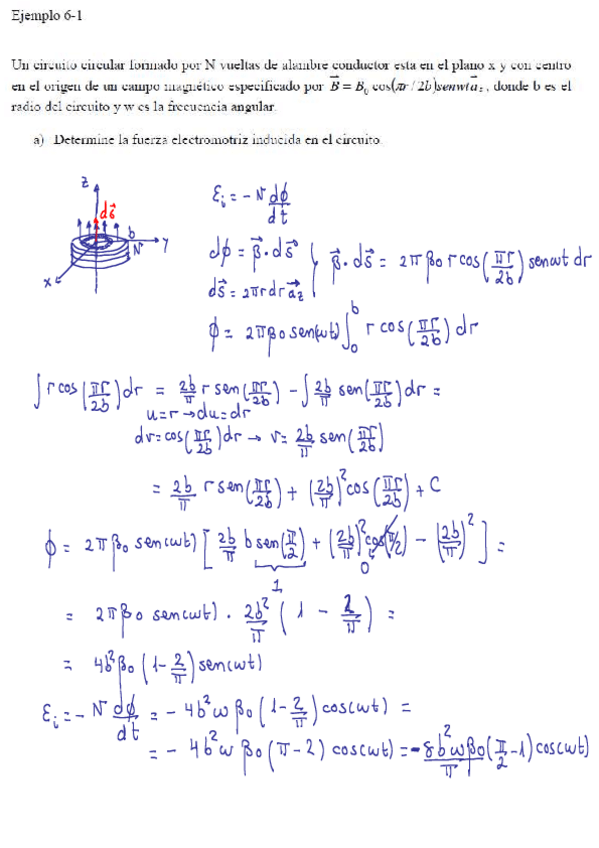 Ejemplo 6-1
Un circuito circular formado por N vueltas de alambre conductor esta en el plano x y con centro
en el origen de un campo magnético especificado por B⃗ = B₀ cos(πr/2b)senwt a⃗z, donde b es el
radio del circuito y w es la frecuencia angular.
a) Determine la fuerza electromotriz inducida en el circuito.
z
ds⃗
b
y
N
x
εi = - N dϕ/dt
dϕ = B⃗ · ds⃗
ds⃗ = 2πrdr a⃗z
B⃗ · ds⃗ = 2π β0 r cos(πr/2b) senωt dr
ϕ = 2πβ0 sen(ωt) ∫₀ᵇ r cos(πr/2b) dr
∫ r cos(πr/2b) dr = 2b/π r sen(πr/2b) - ∫ 2b/π sen(πr/2b) dr =
u=r → du=dr
dv=cos(πr/2b) dr → v= 2b/π sen(πr/2b)
= 2b/π r sen(πr/2b) + (2b/π)² cos(πr/2b) + C
ϕ = 2πβ0 sen(ωt) [ 2b/π b sen(π/2) + (2b/π)² cos(π/2) - (2b/π)² ] =
1
0
= 2πβ0 sen(ωt) · 2b²/π (1 - 2/π) =
= 4b²β0 (1-2/π) sen(ωt)
εi = - N dϕ/dt = - 4b²ω β0 (1-2/π) cos(ωt) =
= - 4b²ω β0 (π-2) cos(ωt) = - 8b²ωβ0/π (π/2 -1) cos(ωt)